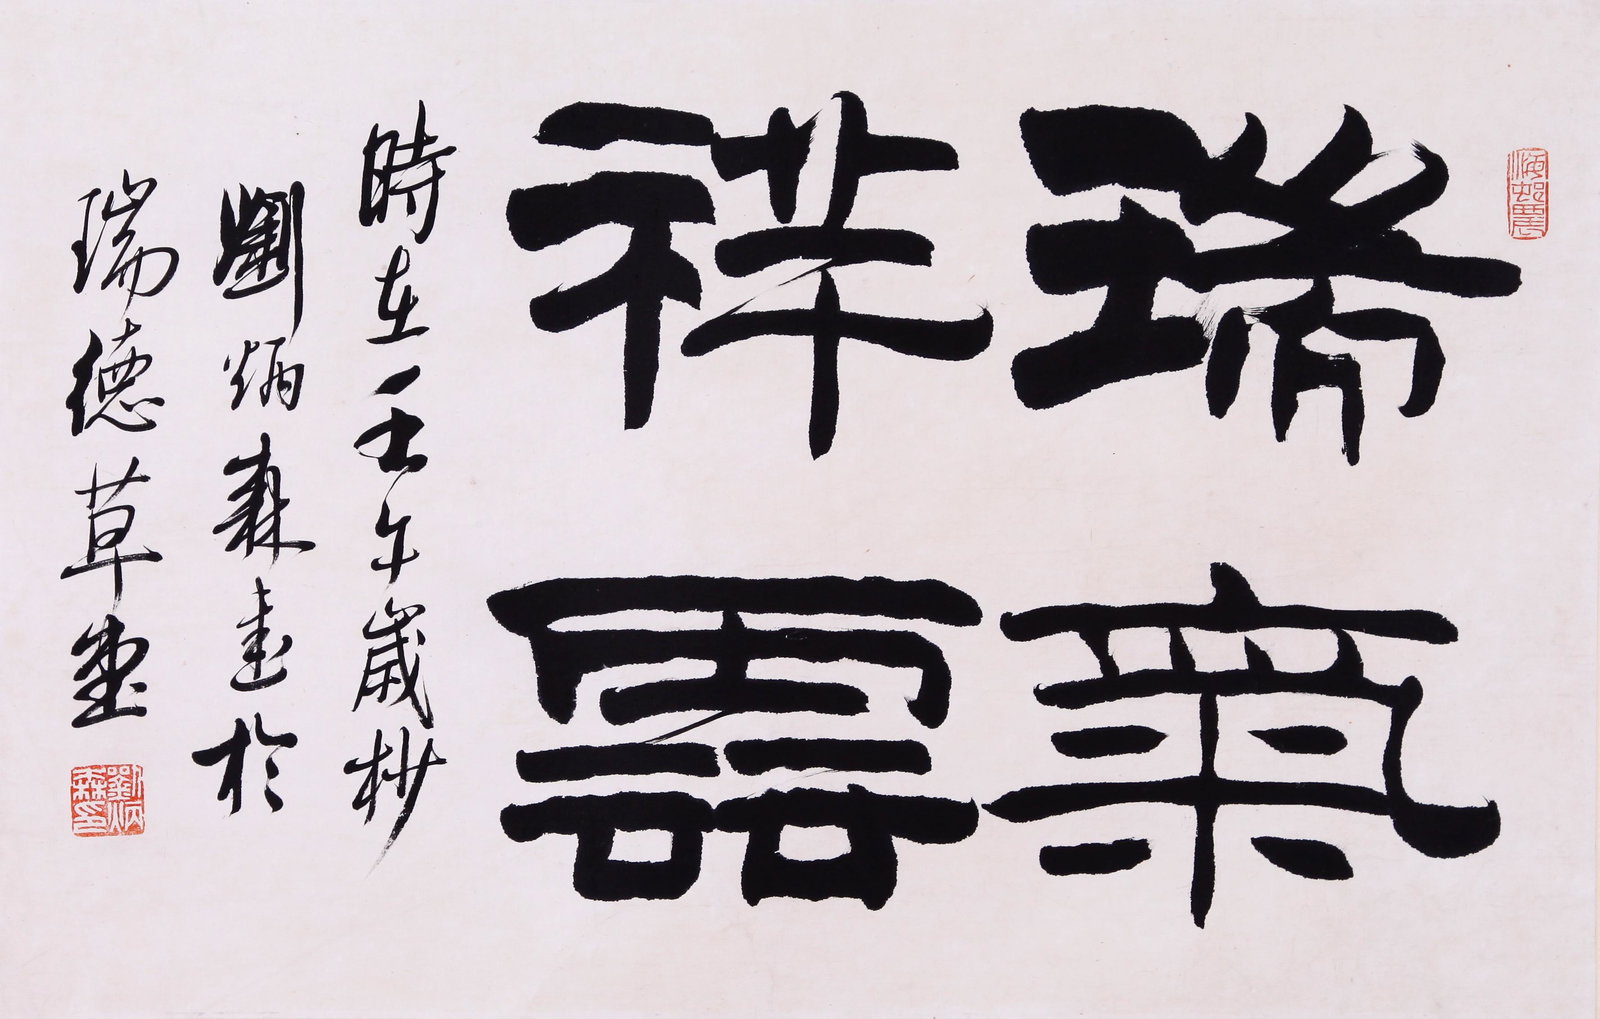 瑞氣
祥雲
時在壬午歲杪
劉炳森書於
瑞德草堂
劉炳森印